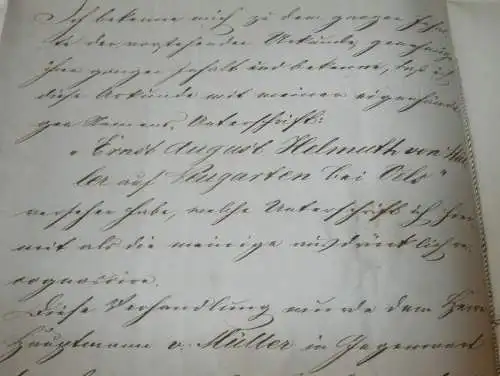 Ich bekenne mich zu dem ganzen Inhal-
te der vorstehenden Urkunde, genehmige
ihren ganzen Inhalt und bekenne, daß ich
diese Urkunde mit meiner eigenhändi-
gen Namens-Unterschrift:
"Ernst August Helmuth von
auf bei Oels"
versehen habe, welche Unterschrift ich hier-
mit als die meinige ausdrücklich re-
cognoscire.
Diese Verhandlung wurde dem Herrn
Hauptmann v. Müller in Gegenwart